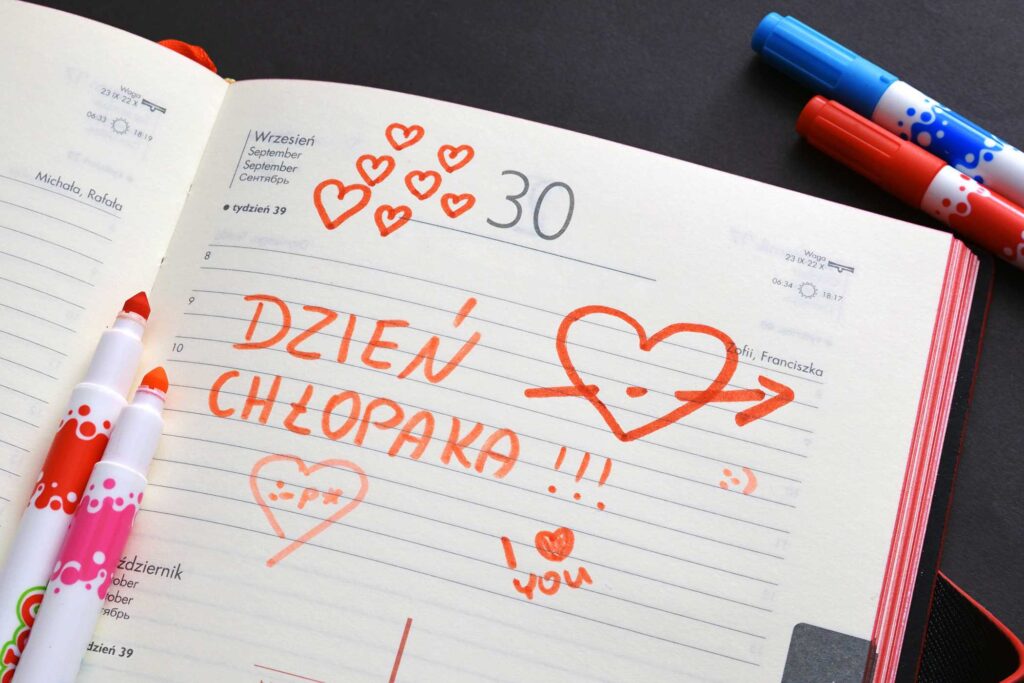 Waga
23 IX-22 X
06:33 18:19
Michała, Rafała
Wrzesień
September
September
Сентябрь
• tydzień 39
30
Waga
23 IX-22 X
06:34 18:17
Zofii, Franciszka
8
9
10
DZIEŃ
CHŁOPAKA !!!
:-p*
:)
I
you
ździernik
ober
ober
ябрь
dzień 39